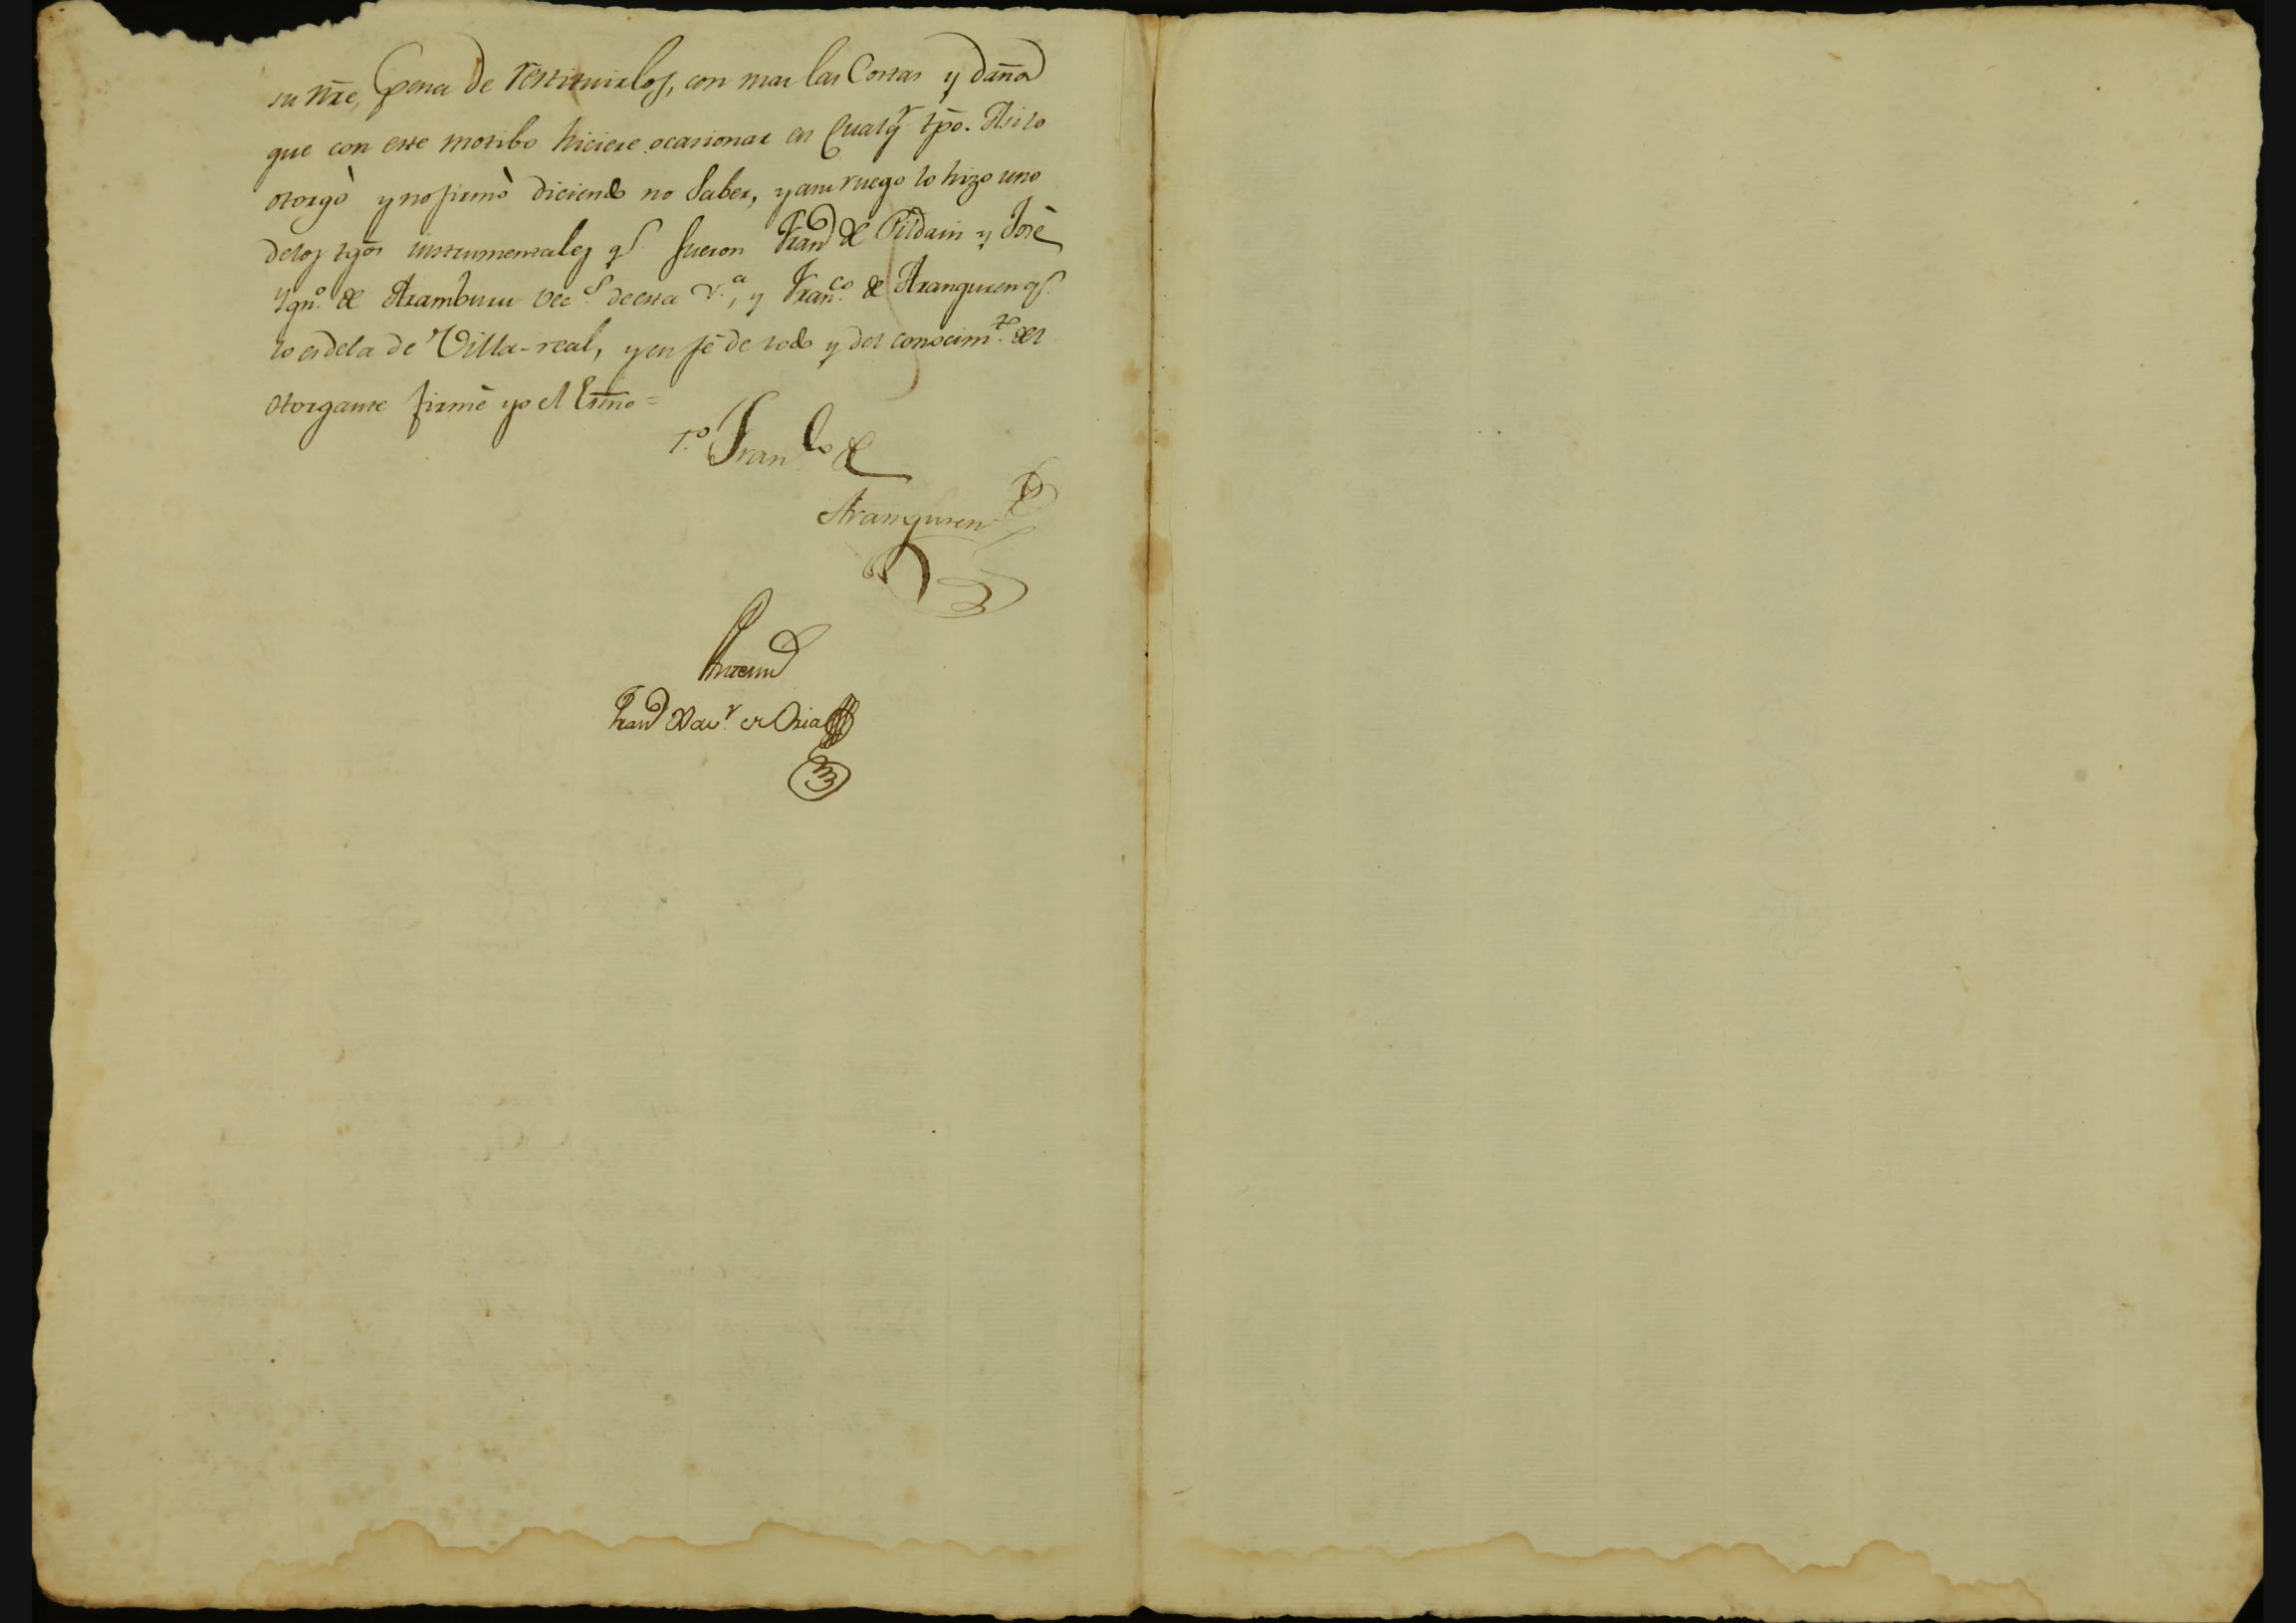 su nr̃e, pena de restituirlos, con mas las Costas y daños
que con este motibo hiciere ocasionar en Cualq.r tpõ. Asi lo
otorgò y no firmò diciendo no Saber, y a su ruego lo hizo uno
de los tgõs instrumentales q.e fueron Fran.co de Pildain y José
Ygn.o de Aramburu vec.s de esta v.a, y Fran.co de Aranguren q.e
lo es de la de Villa-real, y en fé de todo y del conocim.to del
otorgante firmé yo el Esno =
T.o Fran.co de
Aranguren
Ante mi
Fran.co Xav.r de Oria